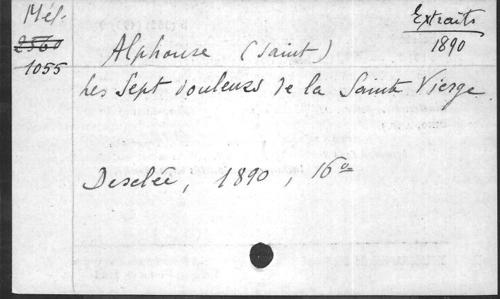 Mél.
2560
1055
Extraits
1890
Alphonse (Saint)
Les Sept douleurs de la Sainte Vierge.
Desclée, 1890, 16°